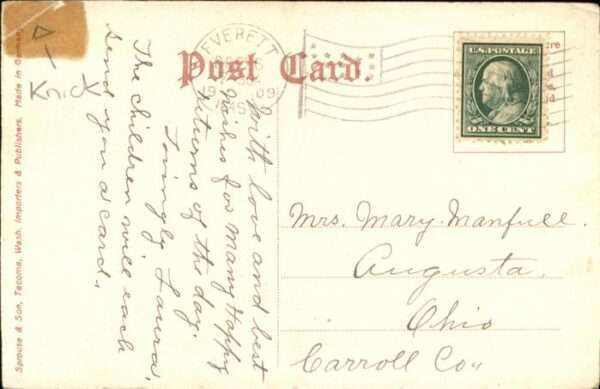 Post Card.
EVERETT
19 09
WASH
U.S. POSTAGE
ONE CENT
With love and best
wishes for many happy
returns of the day.
Lovingly Laura.
The children will each
send you a card.
Mrs. Mary Manfull
Augusta,
Ohio
Carroll Co.,
Sprouse & Son, Tacoma, Wash. Importers & Publishers. Made in German